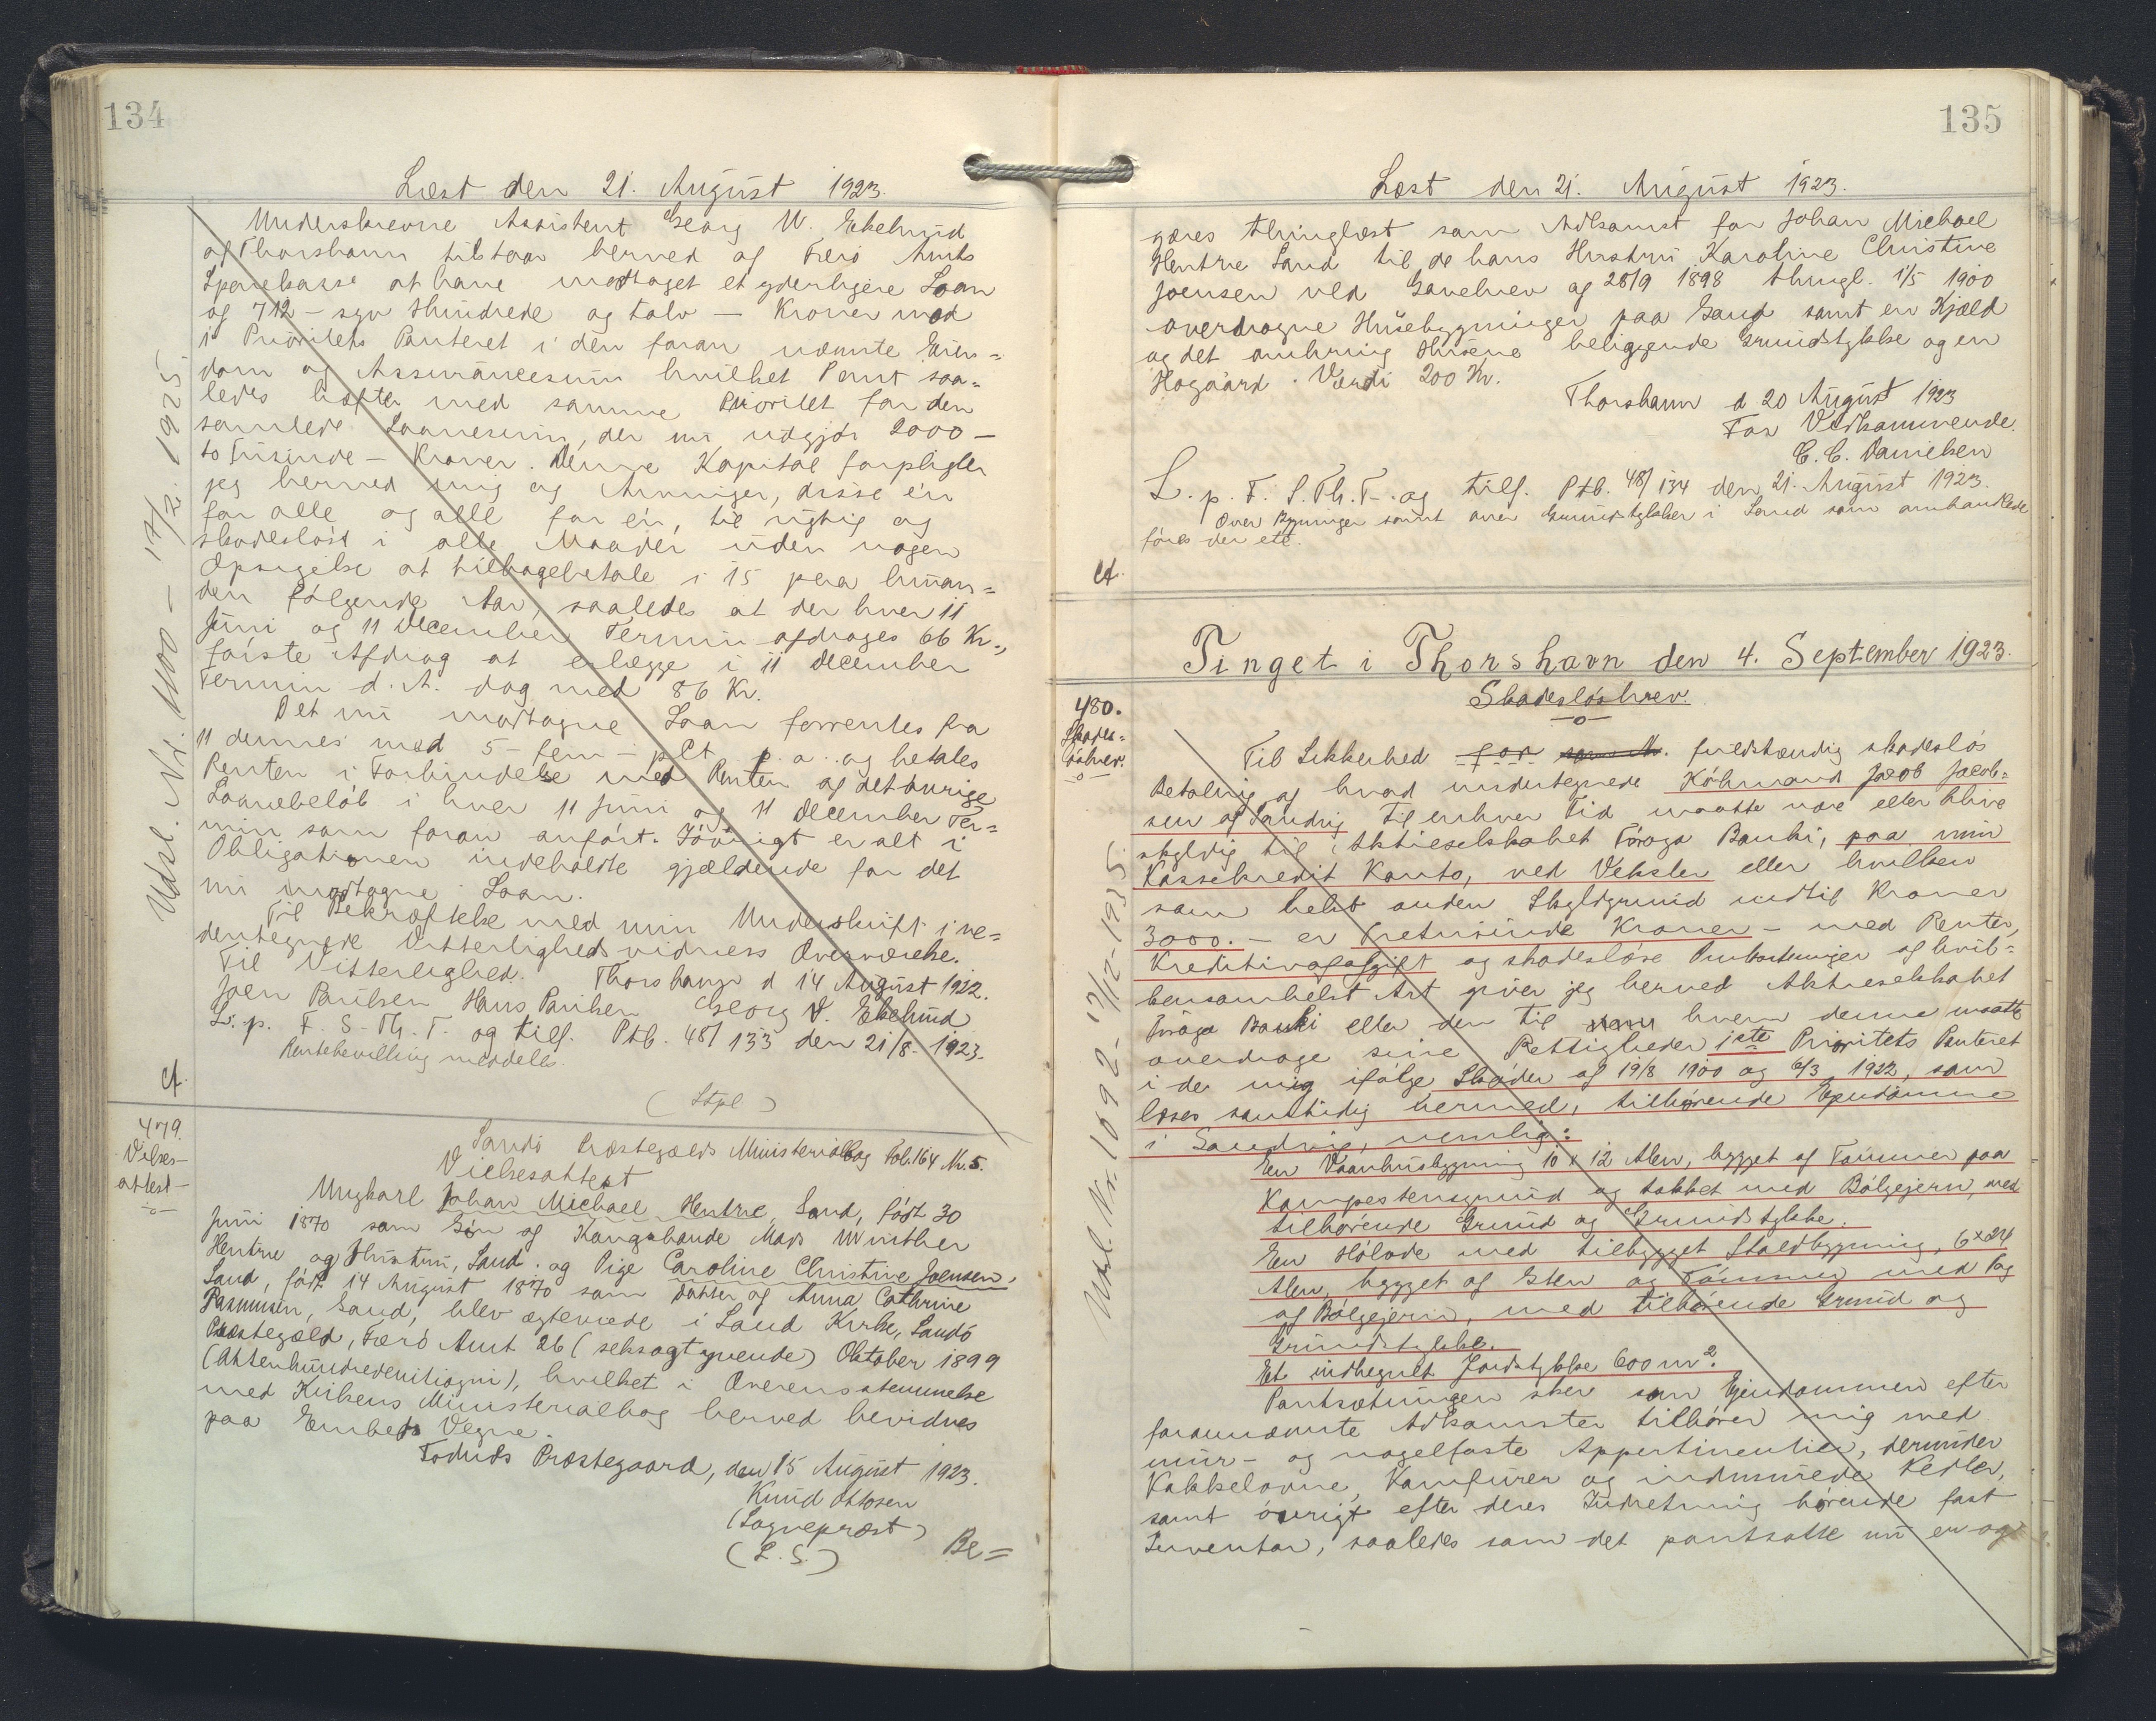 134
Læst den 21. August 1923.
Underskrevne Assistent Georg W. Ekelund
af Thorshavn tilstaar herved af Færø Amts
Sparekasse at have modtaget et yderligere Laan
og 712 – syv Hundrede og tolv – Kroner mod
1 Prioritets Panteret i den foran nævnte Ejen=
dom og Assurancesum hvilket Pant saa=
ledes hæfter med samme Prioritet for den
samlede Laanesum, der nu udgjør 2000 –
to Tusinde – Kroner. Denne Kapital forpligter
jeg herved mig og Arvinger, disse én
for alle og alle for én, til rigtig og
skadesløst i alle Maader uden nogen
Opsigelse at tilbagebetale i 15 paa hinan=
den følgende Aar, saaledes at der hver 11
Juni og 11 December Termin afdrages 66 Kr.,
første Afdrag at erlægge i 11 December
Termin d. A. dog med 86 Kr.
Det nu modtagne Laan forrentes fra
11 dennes med 5 – fem – pCt p. a. og betales
Renten i Forbindelse med Renten af det øvrige
Laanebeløb i hver 11 Juni og 11 December Ter=
min som foran anført. Iøvrigt er alt i
Obligationen indeholdte gjældende for det
nu modtagne Laan.
Til Bekræftelse med min Underskrift i ne=
dentegnede Vitterlighedsvidners Overværelse.
Til Vitterlighed. Thorshavn d 14 August 1922.
Joen Paulsen Hans Paulsen Georg V. Ekelund
L. p. F. S. Th. T. og tilf. Ptb. 48/133 den 21/8 1923.
Rentebevilling meddeles.
cf.
(Stpl)
Udsl. Nr. 1100 – 17/2. 1925.
479.
Vielses-
attest
Sandø Præstegælds Ministerialbog Fol. 164 Nr. 5.
Vielsesattest
Ungkarl Johan Michael Hentze, Sand, født 30
Juni 1870 som Søn af Kongsbonde Mads Winther
Hentze og Hustru, Sand. og Pige Caroline Christine Joensen,
Sand, født 14 August 1870 som Datter af Anna Cathrine
Rasmusen, Sand, blev ægteviede i Sand Kirke, Sandø
Præstegæld, Færø Amt 26 (seksogtyvende) Oktober 1899
(Attenhundredenitiogni), hvilket i Overensstemmelse
med Kirkens Ministerialbog herved bevidnes
paa Embeds Vegne.
Todnæs Præstegaard, den 15 August 1923.
Knud Ottosen
(Sognepræst)
(L. S.)
Be=
135
Læst den 21. August 1923.
gæres thinglæst som Adkomst for Johan Michael
Hentze Sand til de hans Hustru Karoline Christine
Joensen ved Gavebrev af 28/9 1898 thingl. 1/5 1900
overdragne Husebygninger paa Sand samt en Kjæld
og det omkring Husene beliggende Grundstykke og en
Hogaard. Værdi 200 Kr.
Thorshavn d 20 August 1923
For Vedkommende.
C. C. Danielsen
L. p. F. S. Th. T. og tilf. Ptb. 48/134 den 21. August 1923.
Over Bygninger samt over Grundstykker i Sand som omhandlede
føres der ett.
cf.
Tinget i Thorshavn den 4. September 1923.
480.
Skades-
løsbrev.
Skadesløsbrev.
Til Sikkerhed for fuldstændig skadesløs
Betaling af hvad undertegnede Købmand Jacob Jacob=
sen af Sandvig til enhver Tid maatte være eller blive
skyldig til Aktieselskabet Föroya Banki, paa min
Kassekredit Konto, ved Veksler eller hvilken
som helst anden Skyldgrund indtil Kroner
3000. – er Tretusinde Kroner – med Renter,
Kreditivafgift og skadesløse Omkostninger af hvil=
kensomhelst Art giver jeg herved Aktieselskabet
Föroya Banki eller den til hvem denne maatte
overdrage sine Rettigheder 1ste Prioritets Panteret
i de mig ifølge Skøder af 19/8 1900 og 6/3 1922, som
læses samtidig hermed, tilhørende Ejendomme
i Sandvig, nemlig:
Een Vaanhusbygning 10 x 12 Alen, bygget af Tømmer paa
Kampestensgrund og takket med Bølgejern, med
tilhørende Grund og Grundstykke.
Een Hølade med tilbygget Staldbygning, 6 x 24
Alen, bygget af Sten og Tømmer med Tag
af Bølgejern, med tilhørende Grund og
Grundstykke.
Et indhegnet Jordstykke 600 m².
Pantsætningen sker som Ejendommen efter
forannævnte Adkomster tilhører mig med
mur- og nagelfaste Appertinentier, derunder
Kakkelovne, Komfurer og indmurede Kedler,
samt øvrigt efter deres Indretning hørende fast
Inventar, saaledes som det pantsatte nu er og
Udsl. Nr. 1092 – 17/12 – 1935.